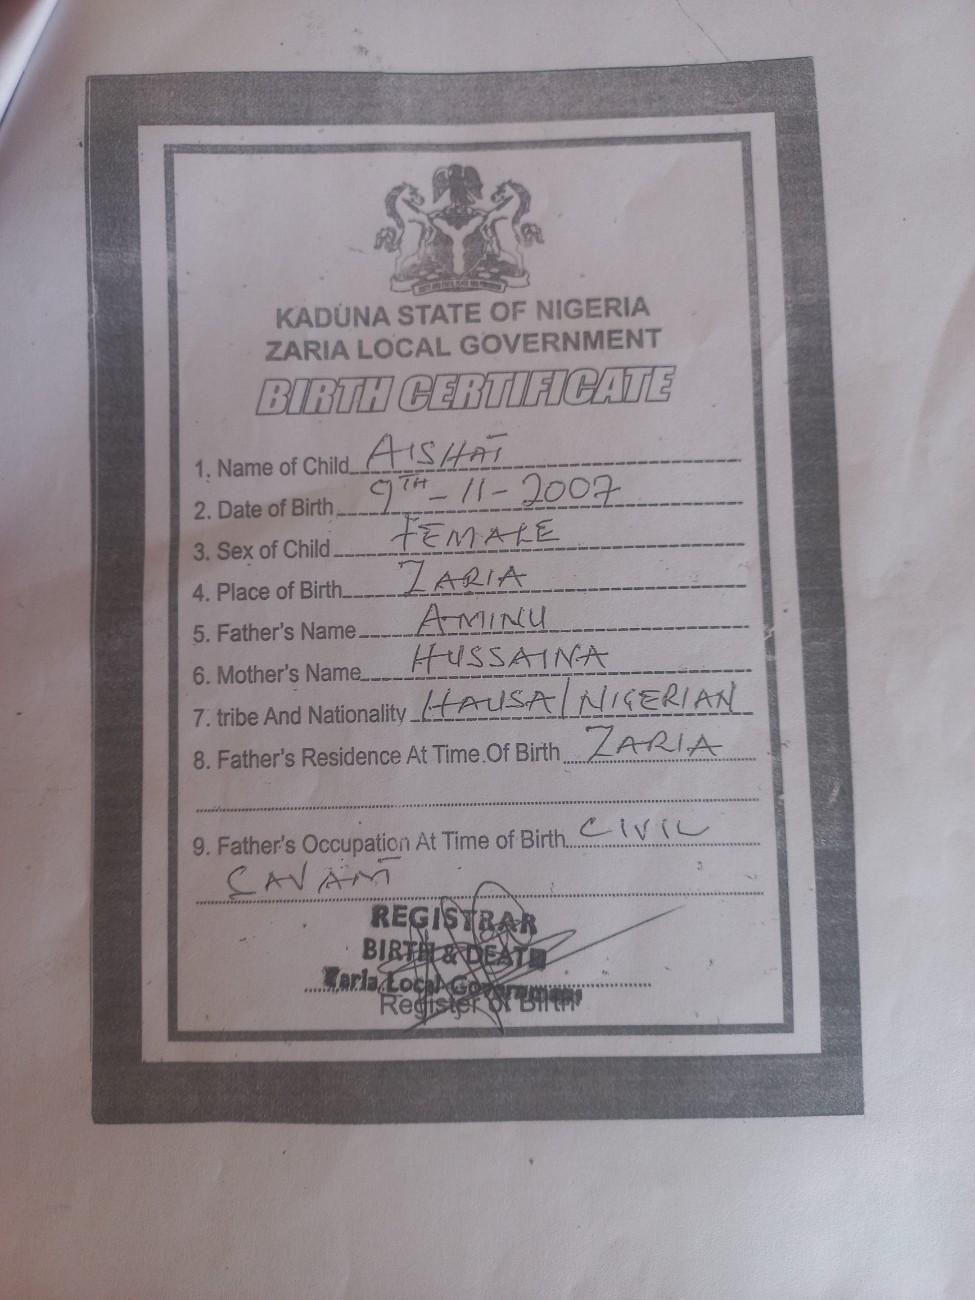 KADUNA STATE OF NIGERIA
ZARIA LOCAL GOVERNMENT
BIRTH CERTIFICATE
1. Name of Child AISHAT
2. Date of Birth 9TH-11-2007
3. Sex of Child FEMALE
4. Place of Birth ZARIA
5. Father's Name AMINU
6. Mother's Name HUSSAINA
7. tribe And Nationality HAUSA/NIGERIAN
8. Father's Residence At Time.Of Birth ZARIA
9. Father's Occupation At Time of Birth CIVIL
REGISTRAR
BIRTH & DEATH
Zaria Local Government
Register of Birth